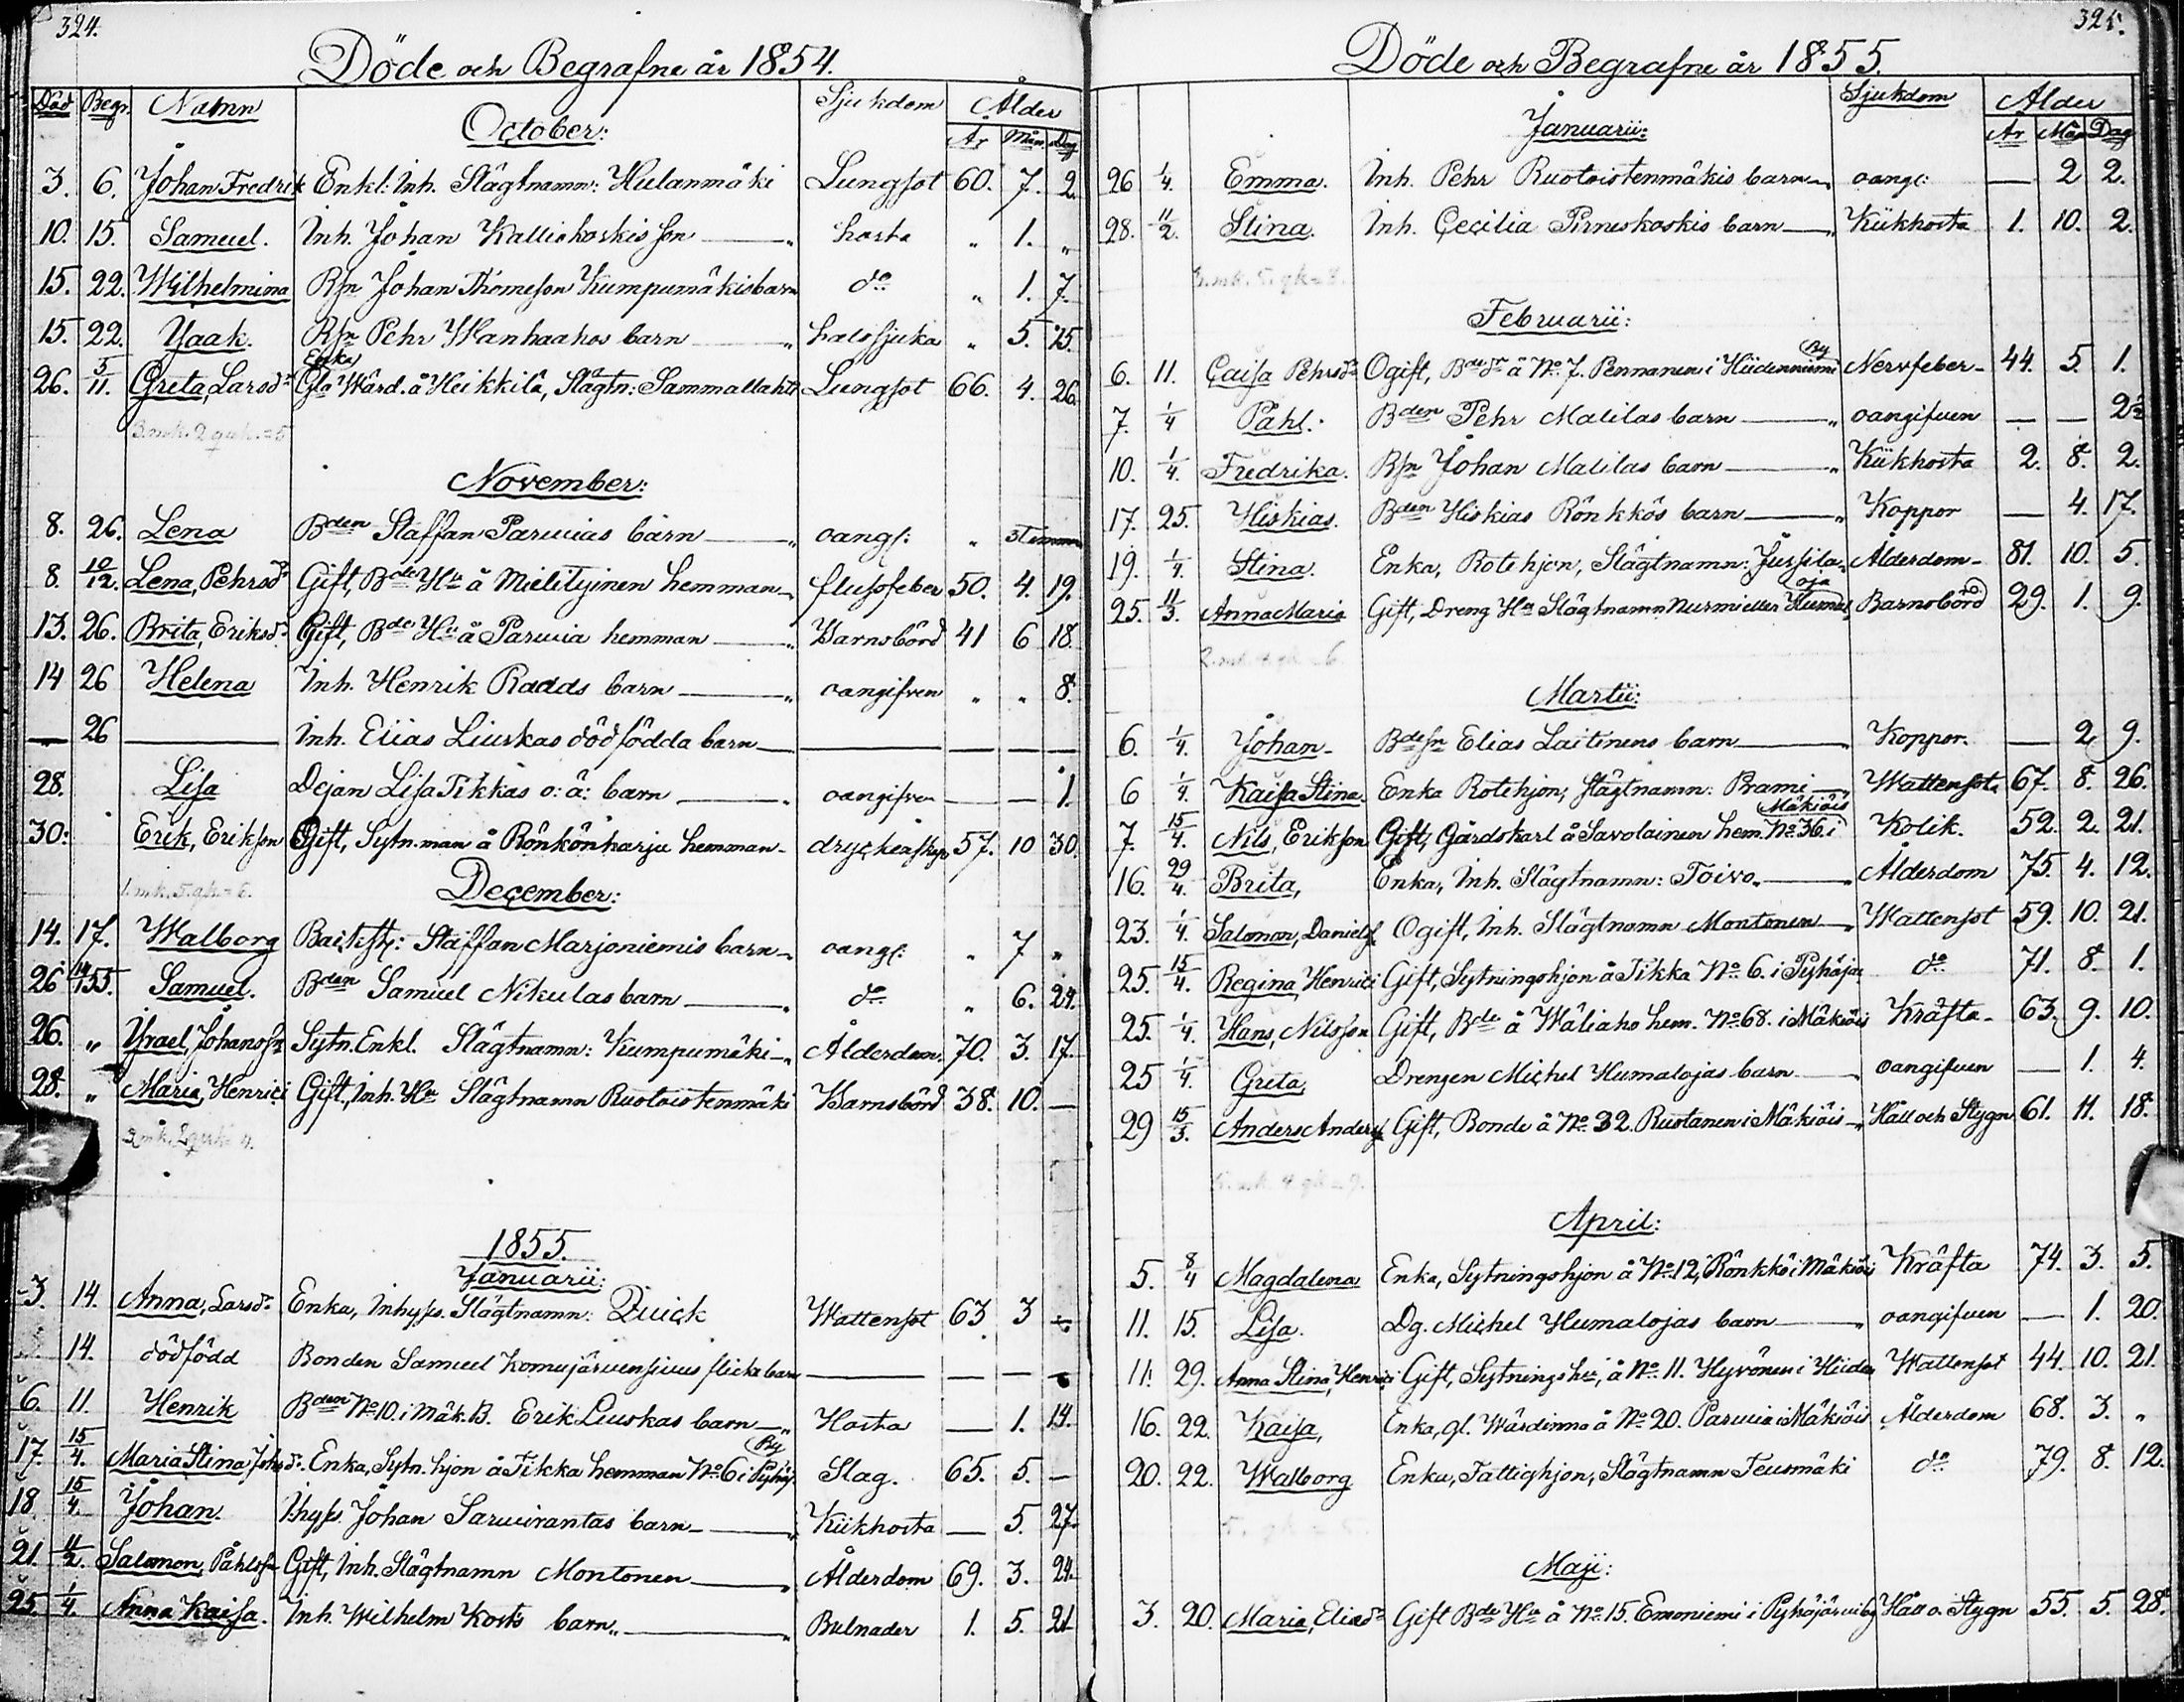 324.
Döde och Begrafne år 1854.
Död Begr. Namn Sjukdom Ålder
October: År Mån Dag
3. 6. Johan Fredrik Enkl: Inh. Slägtnamn: Hulanmäki Lungsot 60. 7. 2
10. 15. Samuel. Inh. Johan Kalliokoskis son hosta " 1. "
15. 22. Wilhelmina Rsn Johan Thomeson Kumpumäkis barn do " 1. 7.
15. 22. Ysaak. Rsn Pehr Wanhaahos barn halssjuka " 5. 15.
Enka
26. 5/11. Greta, Larsdr Gla Wärd. å Heikkilä, Slägtn: Sammallahti Lungsot 66. 4. 26.
3. mk. 2 qvk. = 5
November:
8. 26. Lena Bden Staffan Parviias barn oangf: " 3 timmar
8. 10/12. Lena, Pehrsdr Gift, Bde Hu å Mielityinen hemman flussfeber 50. 4. 19.
13. 26. Brita, Eriksdr Gift, Bde Hu å Parviia hemman Barnsbörd 41 6 18.
14 26 Helena Inh. Henrik Radds barn oangifven " " 8.
— 26 — Inh. Elias Liuskas dödfödda barn — — — —
28. Lisa Dejan Lisa Tikkas o: ä: barn oangifven — — 1.
30. Erik, Erikson Gift, Sytn. man å Rönkönharju hemman dryckenskap 57. 10 30.
1. mk. 5. qk = 6.
December:
14. 17. Walborg Backst: Staffan Marjoniemis barn oangf: " 7 "
26 14/1 55. Samuel. Bden Samuel Nikulas barn do " 6. 24.
26. " Ysrael, Johansson Sytn. Enkl. Slägtnamn: Kumpumäki Ålderdom. 70. 3. 17.
28. " Maria, Henrici Gift, Inh. Hu Slägtnamn Ruotoistenmäki Barnsbörd 38. 10. —
2 mk. 2 qvk 4.
1855.
Januarii:
3. 14. Anna, Larsdr Enka, Inhyses. Slägtnamn: Quick Wattensot 63 3 —
14. dödfödd Bonden Samuel Komujärvensivus flickebarn — — — —
6. 11. Henrik Bden No 10. i Mäk. B. Erik Liuskas barn Hosta — 1. 14.
By
17. 15/4. Maria Stina Johsdr. Enka, Sytn. hjon å Tikka hemman No 6 i Pyhäj. Slag. 65. 5. —
18 15/4. Johan. Ihyss. Johan Sarvirantas barn Kikhosta — 5. 27.
21. 11/2. Salomon, Påhlsson Gift, Inh. Slägtnamn Montonen Ålderdom 69. 3. 24.
25. 1/4. Anna Kaisa. Inh. Wilhelm Korts barn Bulnader 1. 5. 21
325.
Döde och Begrafne år 1855.
Sjukdom Ålder
Januarii: År Mån Dag
26 1/4. Emma. Inh. Pehr Ruotoistenmäkis barn oangf: — 2 2.
28. 11/2. Stina. Inh. Cecilia Pirneskoskis barn Kikhosta 1. 10. 2.
3. mk. 5. qk = 8.
Februarii:
By
6. 11. Caisa Pehrsdr Ogift, Bdedr å No 7. Pennanen i Hiidenniemi Nervfeber 44. 5. 1.
7. 1/4 Påhl. Bden Pehr Malilas barn oangifven — — 2 1/2
10. 1/4. Fredrika. Rsn Johan Malilas barn Kikhosta 2. 8. 2.
17. 25. Hiskias. Bden Hiskias Rönkkös barn Koppor — 4. 17.
19. 1/4. Stina. Enka, Rotehjon, Slägtnamn: Jussila Ålderdom 81. 10. 5.
oja
25. 11/3. Anna Maria Gift, Dreng Hu Slägtnamn Nurmi eller Humal Barnsbörd 29. 1. 9.
2. mk. 4 qk. = 6.
Martii:
6. 1/4. Johan Bdesn Elias Laitinens barn Koppor. — 2 9.
6 1/4. Kaisa Stina. Enka Rotehjon, Slägtnamn: Prami Wattensot 67. 8. 26.
Mäkiöis
7. 15/4. Nils, Erikson Gift, Gårdskarl å Savolainen hem. No 36. i Kolik. 52. 2. 21.
16. 29/4. Brita, Enka, Inh. Slägtnamn: Toivo Ålderdom 75. 4. 12.
23. 1/4. Salomon, Daniels Ogift, Inh. Slägtnamn Montonen Wattensot 59. 10. 21.
25. 15/4. Regina, Henrici Gift, Sytningshjon å Tikka No 6. i Pyhäjär do 71. 8. 1.
25. 1/4. Hans, Nilsson Gift, Bde å Wäliaho hem. No 68. i Mäkiöis Kräfta 63. 9. 10.
25 1/4. Greta, Drengen Michel Humalojas barn oangifven — 1. 4.
29 15/3. Anders Anders Gift, Bonde å No 32. Ruotanen i Mäkiöis Håll och Stygn 61. 11. 18.
5. mk. 4 qk = 9.
April:
5. 8/4 Magdalena Enka, Sytningshjon å No 12, Rönkkö i Mäkiöis Kräfta 74. 3. 5.
11. 15. Lisa. Dg. Michel Humalojas barn oangifven — 1. 20.
11. 29. Anna Stina, Henrici Gift, Sytnings hu, å No 11. Hyvönen i Hiiden Wattensot 44. 10. 21.
16. 22. Kaisa, Enka, gl. Wärdinna å No 20. Parviia i Mäkiöis Ålderdom 68. 3. "
20. 22. Walborg Enka, Fattighjon, Slägtnamn Teusmäki do 79. 8. 12.
Maji:
3. 20. Maria, Eliædr Gift Bde Hu å No 15. Emoniemi i Pyhäjärvi by Håll o. Stygn 55. 5. 28.